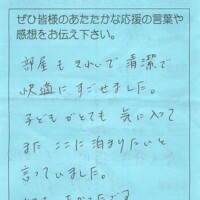 ぜひ皆様のあたたかな応援の言葉や
感想をお伝え下さい。
部屋もきれいで清潔で
快適にすごせました。
子どもがとても気に入って
またここに泊まりたいと
言っていました。